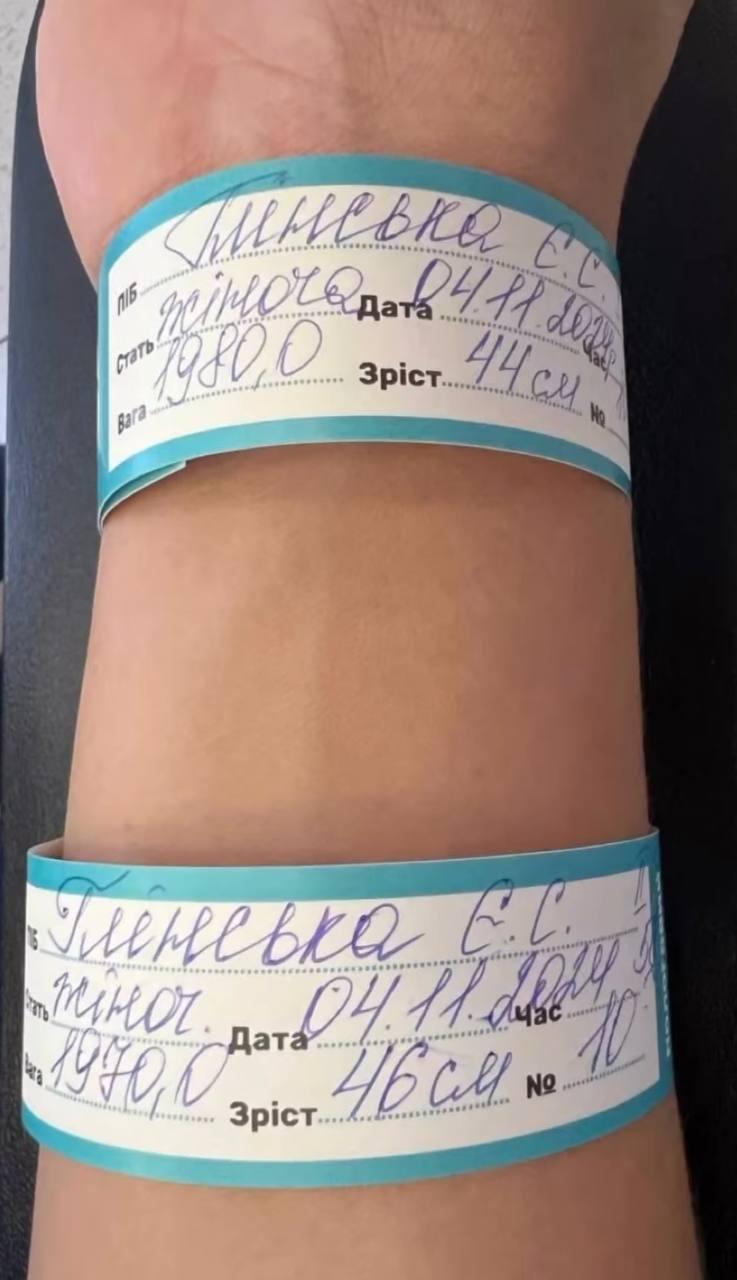 ПІБ Глінська Є.С.
Стать жіноча Дата 04.11.2024 Час
Вага 1980,0 Зріст 44 см №
ПІБ Глінська Є.С.
Стать жіноч. Дата 04.11.2024 Час
Вага 1970,0 Зріст 46 см № 10